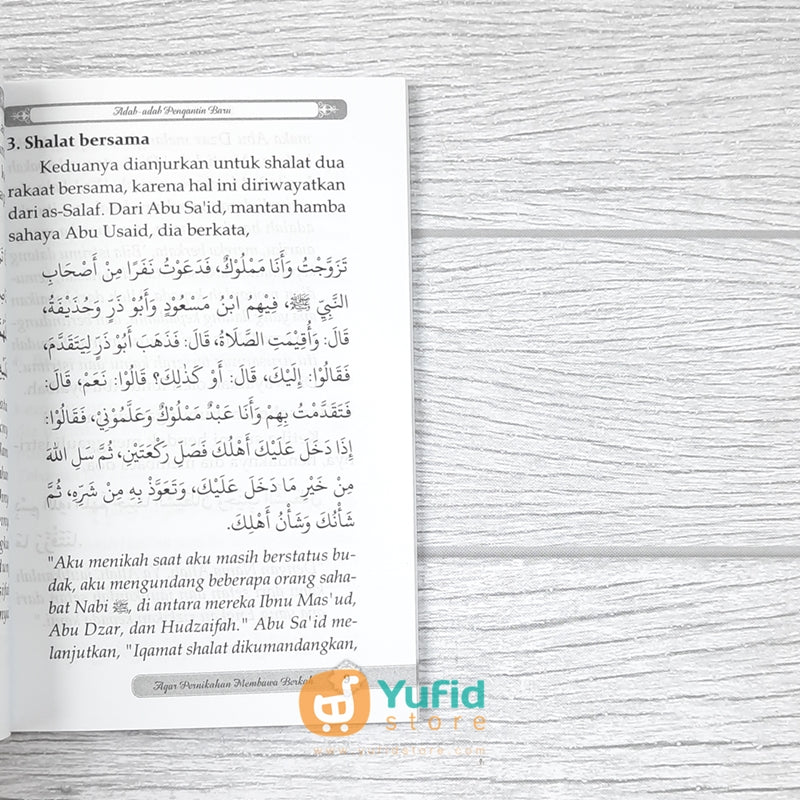 Adab-adab Pengantin Baru
3. Shalat bersama
Keduanya dianjurkan untuk shalat dua
rakaat bersama, karena hal ini diriwayatkan
dari as-Salaf. Dari Abu Sa'id, mantan hamba
sahaya Abu Usaid, dia berkata,
تَزَوَّجْتُ وَأَنَا مَمْلُوْكٌ، فَدَعَوْتُ نَفَرًا مِنْ أَصْحَابِ
النَّبِيِّ ﷺ، فِيْهِمُ ابْنُ مَسْعُوْدٍ وَأَبُوْ ذَرٍّ وَحُذَيْفَةُ،
قَالَ: وَأُقِيْمَتِ الصَّلَاةُ، قَالَ: فَذَهَبَ أَبُوْ ذَرٍّ لِيَتَقَدَّمَ،
فَقَالُوْا: إِلَيْكَ، قَالَ: أَوَ كَذٰلِكَ؟ قَالُوْا: نَعَمْ، قَالَ:
فَتَقَدَّمْتُ بِهِمْ وَأَنَا عَبْدٌ مَمْلُوْكٌ وَعَلَّمُوْنِيْ، فَقَالُوْا:
إِذَا دَخَلَ عَلَيْكَ أَهْلُكَ فَصَلِّ رَكْعَتَيْنِ، ثُمَّ سَلِ اللهَ
مِنْ خَيْرِ مَا دَخَلَ عَلَيْكَ، وَتَعَوَّذْ بِهِ مِنْ شَرِّهِ، ثُمَّ
شَأْنُكَ وَشَأْنُ أَهْلِكَ.
"Aku menikah saat aku masih berstatus bu-
dak, aku mengundang beberapa orang saha-
bat Nabi ﷺ, di antara mereka Ibnu Mas'ud,
Abu Dzar, dan Hudzaifah." Abu Sa'id me-
lanjutkan, "Iqamat shalat dikumandangkan,
Agar Pernikahan Membawa Berkah
Yufid
store
www.yufidstore.com